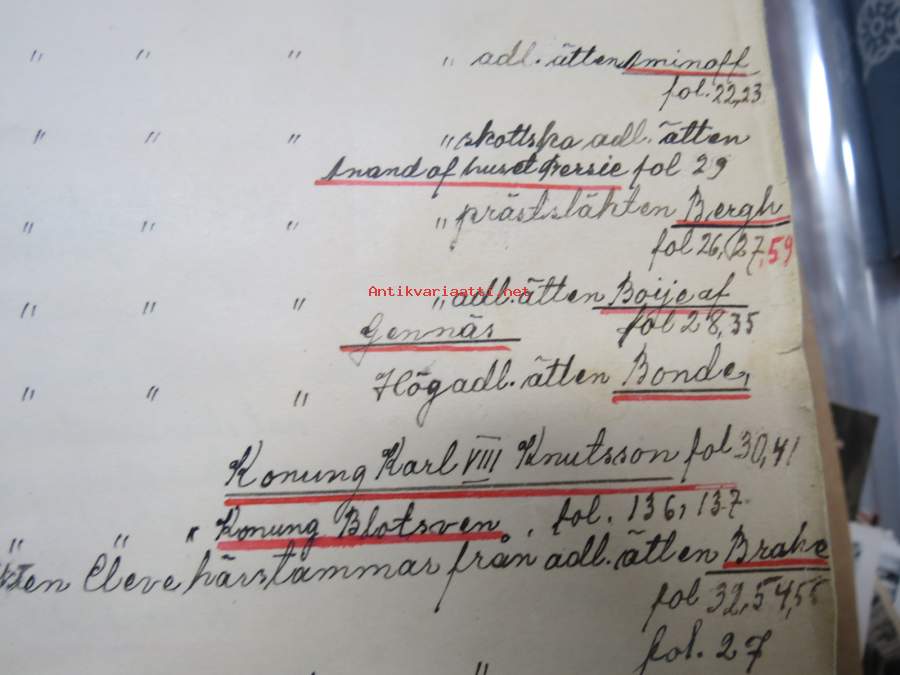 " " " " adl. ätten Aminoff
fol. 22,23
" " " " skottska adl. ätten
Anand af huset Gressie fol 29
" " " prästsläkten Bergh
fol 26, 27, 59
Antikvariaatti.net
" " " " adl. ätten Boije af
Gennäs fol 28, 35
" " " Högadl. ätten Bonde,
Konung Karl VIII Knutsson fol 30, 41
" " " Konung Blotsven, fol. 136, 137
Cleve härstammar från adl. ätten Brahe
fol 32, 54, 55
fol. 27
"